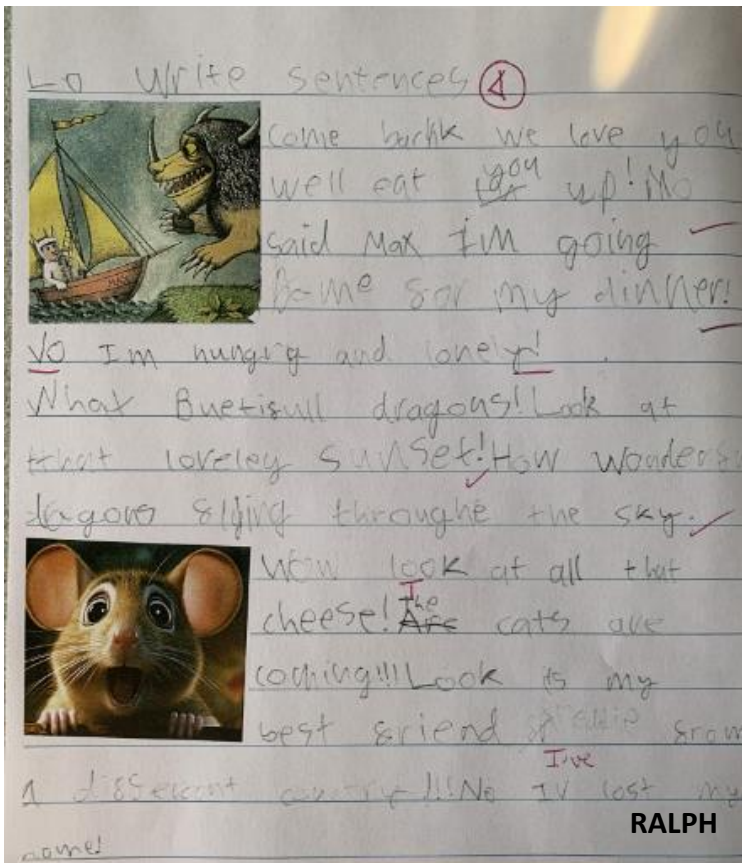 Lo Write Sentences
Come backk we love you
well eat you up! No
said Max I'm going
home for my dinner!
VO Im hungrg and lonely!
What Buetifull dragons! Look at
that loveley sunset! How wonderfu
dragons flying throughe the sky.
Wow look at all that
cheese! The cats are
coming!!! Look its my
best friend from
a different country!!! No I've lost my
home!
RALPH